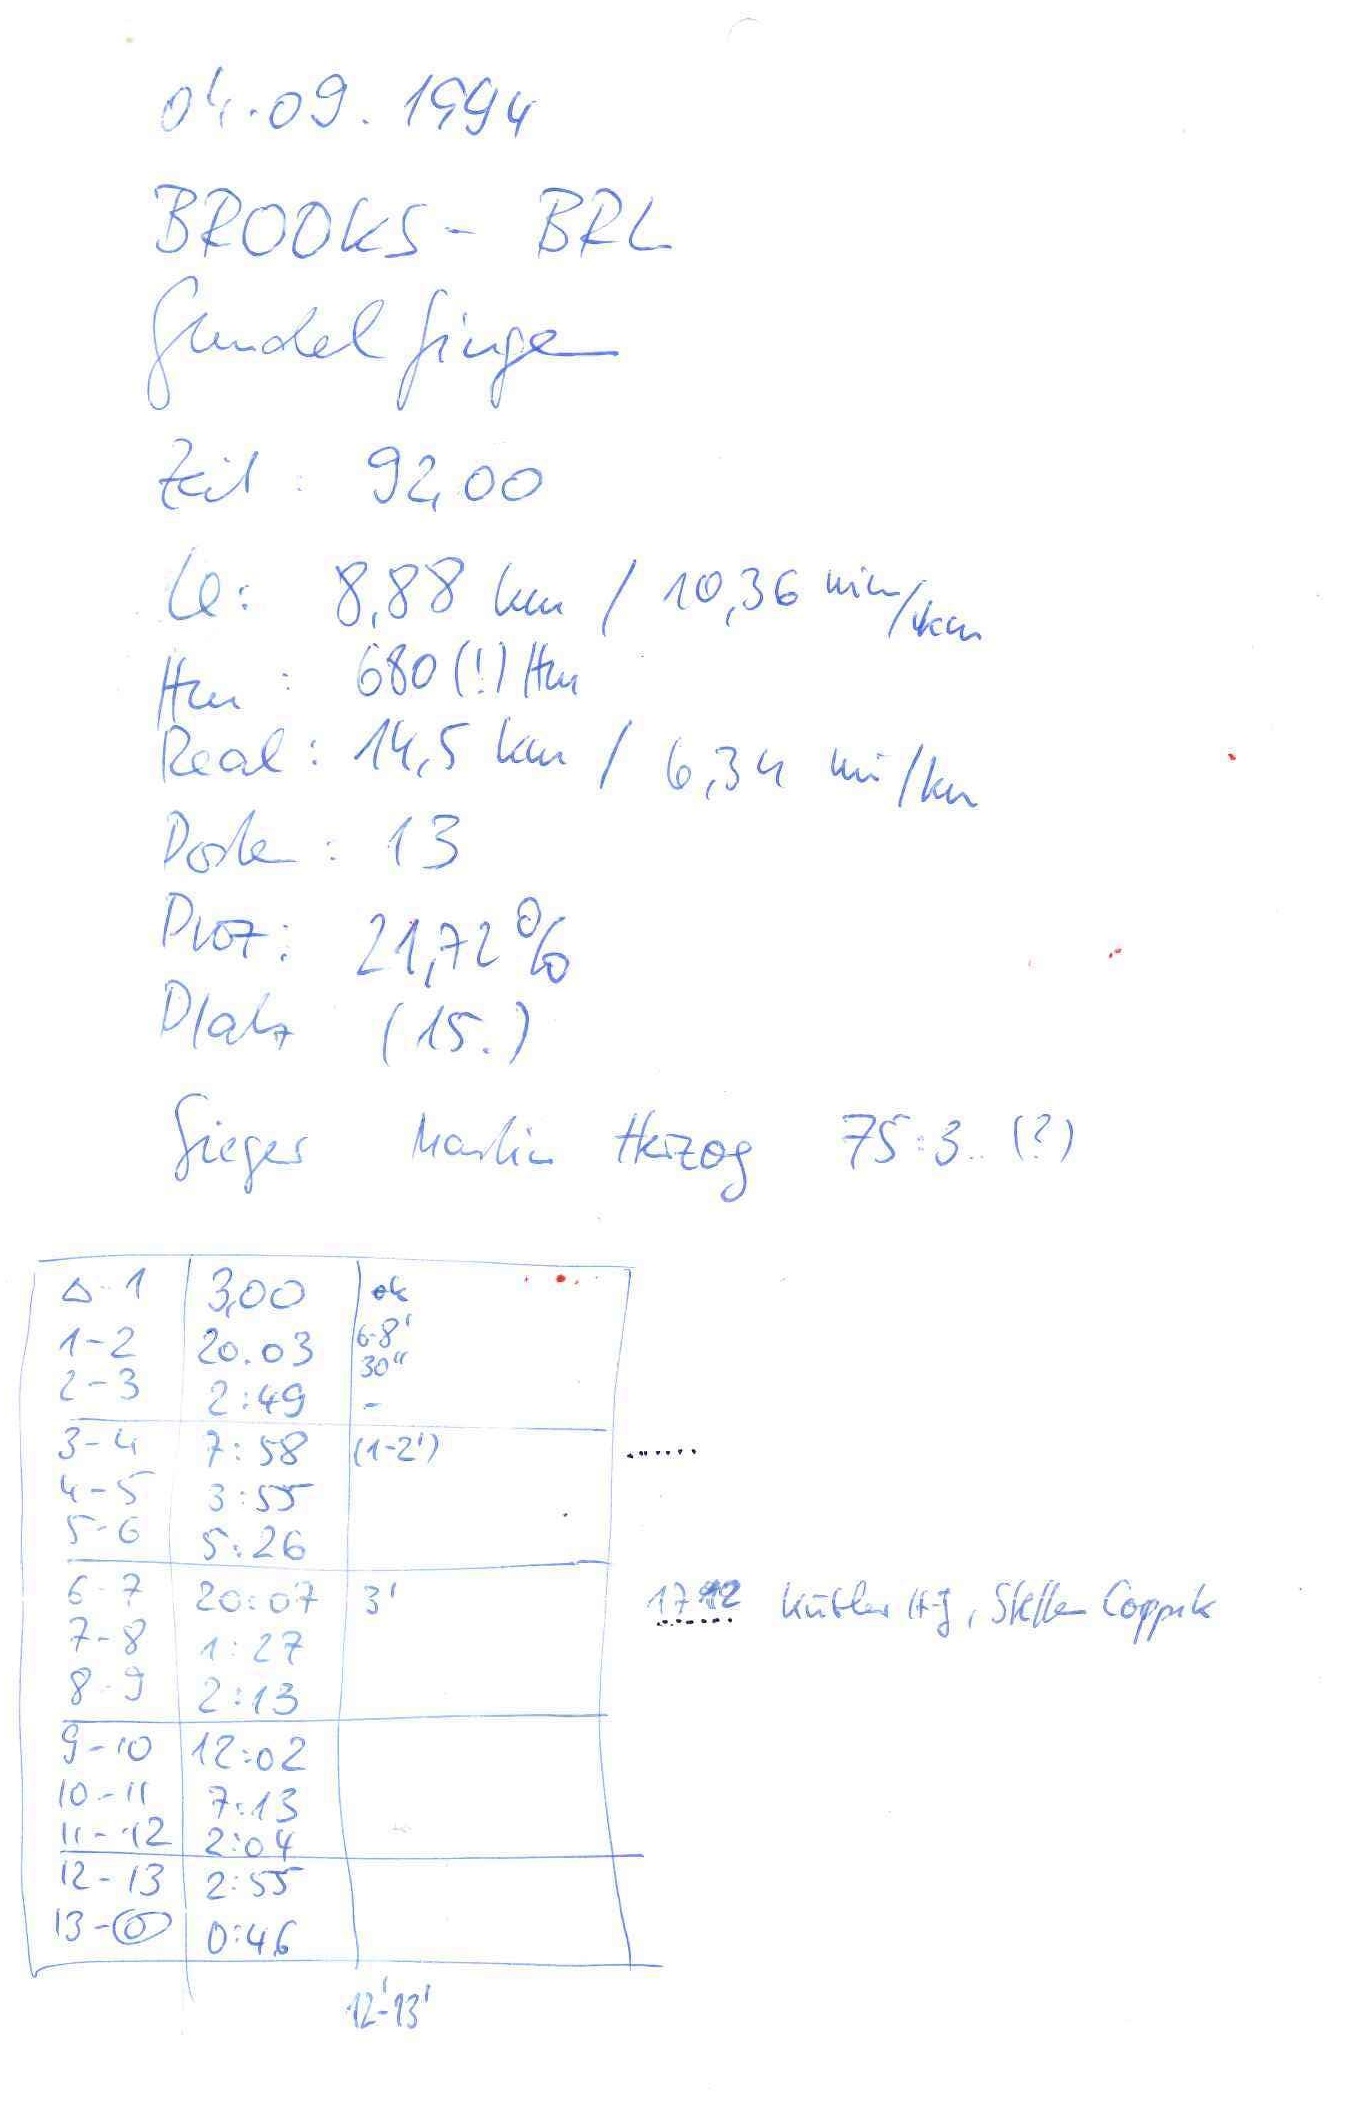 04.09.1994
BROOKS - BRL
Gundelfingen
Zeit: 92,00
Le: 8,88 km / 10,36 min/km
Hm: 680 (!) Hm
Real: 14,5 km / 6,34 min/km
Posten: 13
Proz: 21,72 %
Platz (15.)
Sieger Martin Herzog 75:3.. (?)
△-1 3,00 ok
1-2 20.03 6-8' 30"
2-3 2:49 -
3-4 7:58 (1-2')
4-5 3:55
5-6 5:26
6-7 20:07 3' 17 Kübler HJ, Steffen
7-8 1:27
8-9 2:13
9-10 12:02
10-11 7:13
11-12 2:04
12-13 2:55
13-◎ 0:46
12'-13'